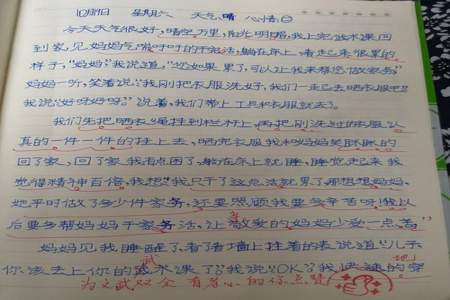 10月19日 星期六 天气:晴 心情:☺
今天天气很好,晴空万里,阳光明媚,我上完武术课回
到家,见妈妈气喘吁吁的干完活,躺在床上,看起来很累的
样子,“妈妈”我说道,“您如果累了,可以让我来帮您做家务”
妈妈一听,笑着说“我刚把衣服洗好,我们一起去晒衣服吧”
我说“好呀好呀”说着,我们带上工具和衣服就去了。
我们先把晒衣绳挂到栏杆上,再把刚洗过的衣服认
真的一件一件的挂上去,晒完衣服我和妈妈美滋滋的
回了家,回了家我有点困了,躺在床上就睡,睡觉起来我
觉得精神百倍,我想“我只干了这点活就累了,那想想妈妈,
她平时做了多少件家务,还要照顾我,要多辛苦呀,我以
后要多帮妈妈干家务活,让敬爱的妈妈少受一点苦”
妈妈见我睡醒了,看了看墙上挂着的表说道“儿子
你该去上你的武术课了”我说“OK”我快速的穿
为文武双全 有孝心的你点赞